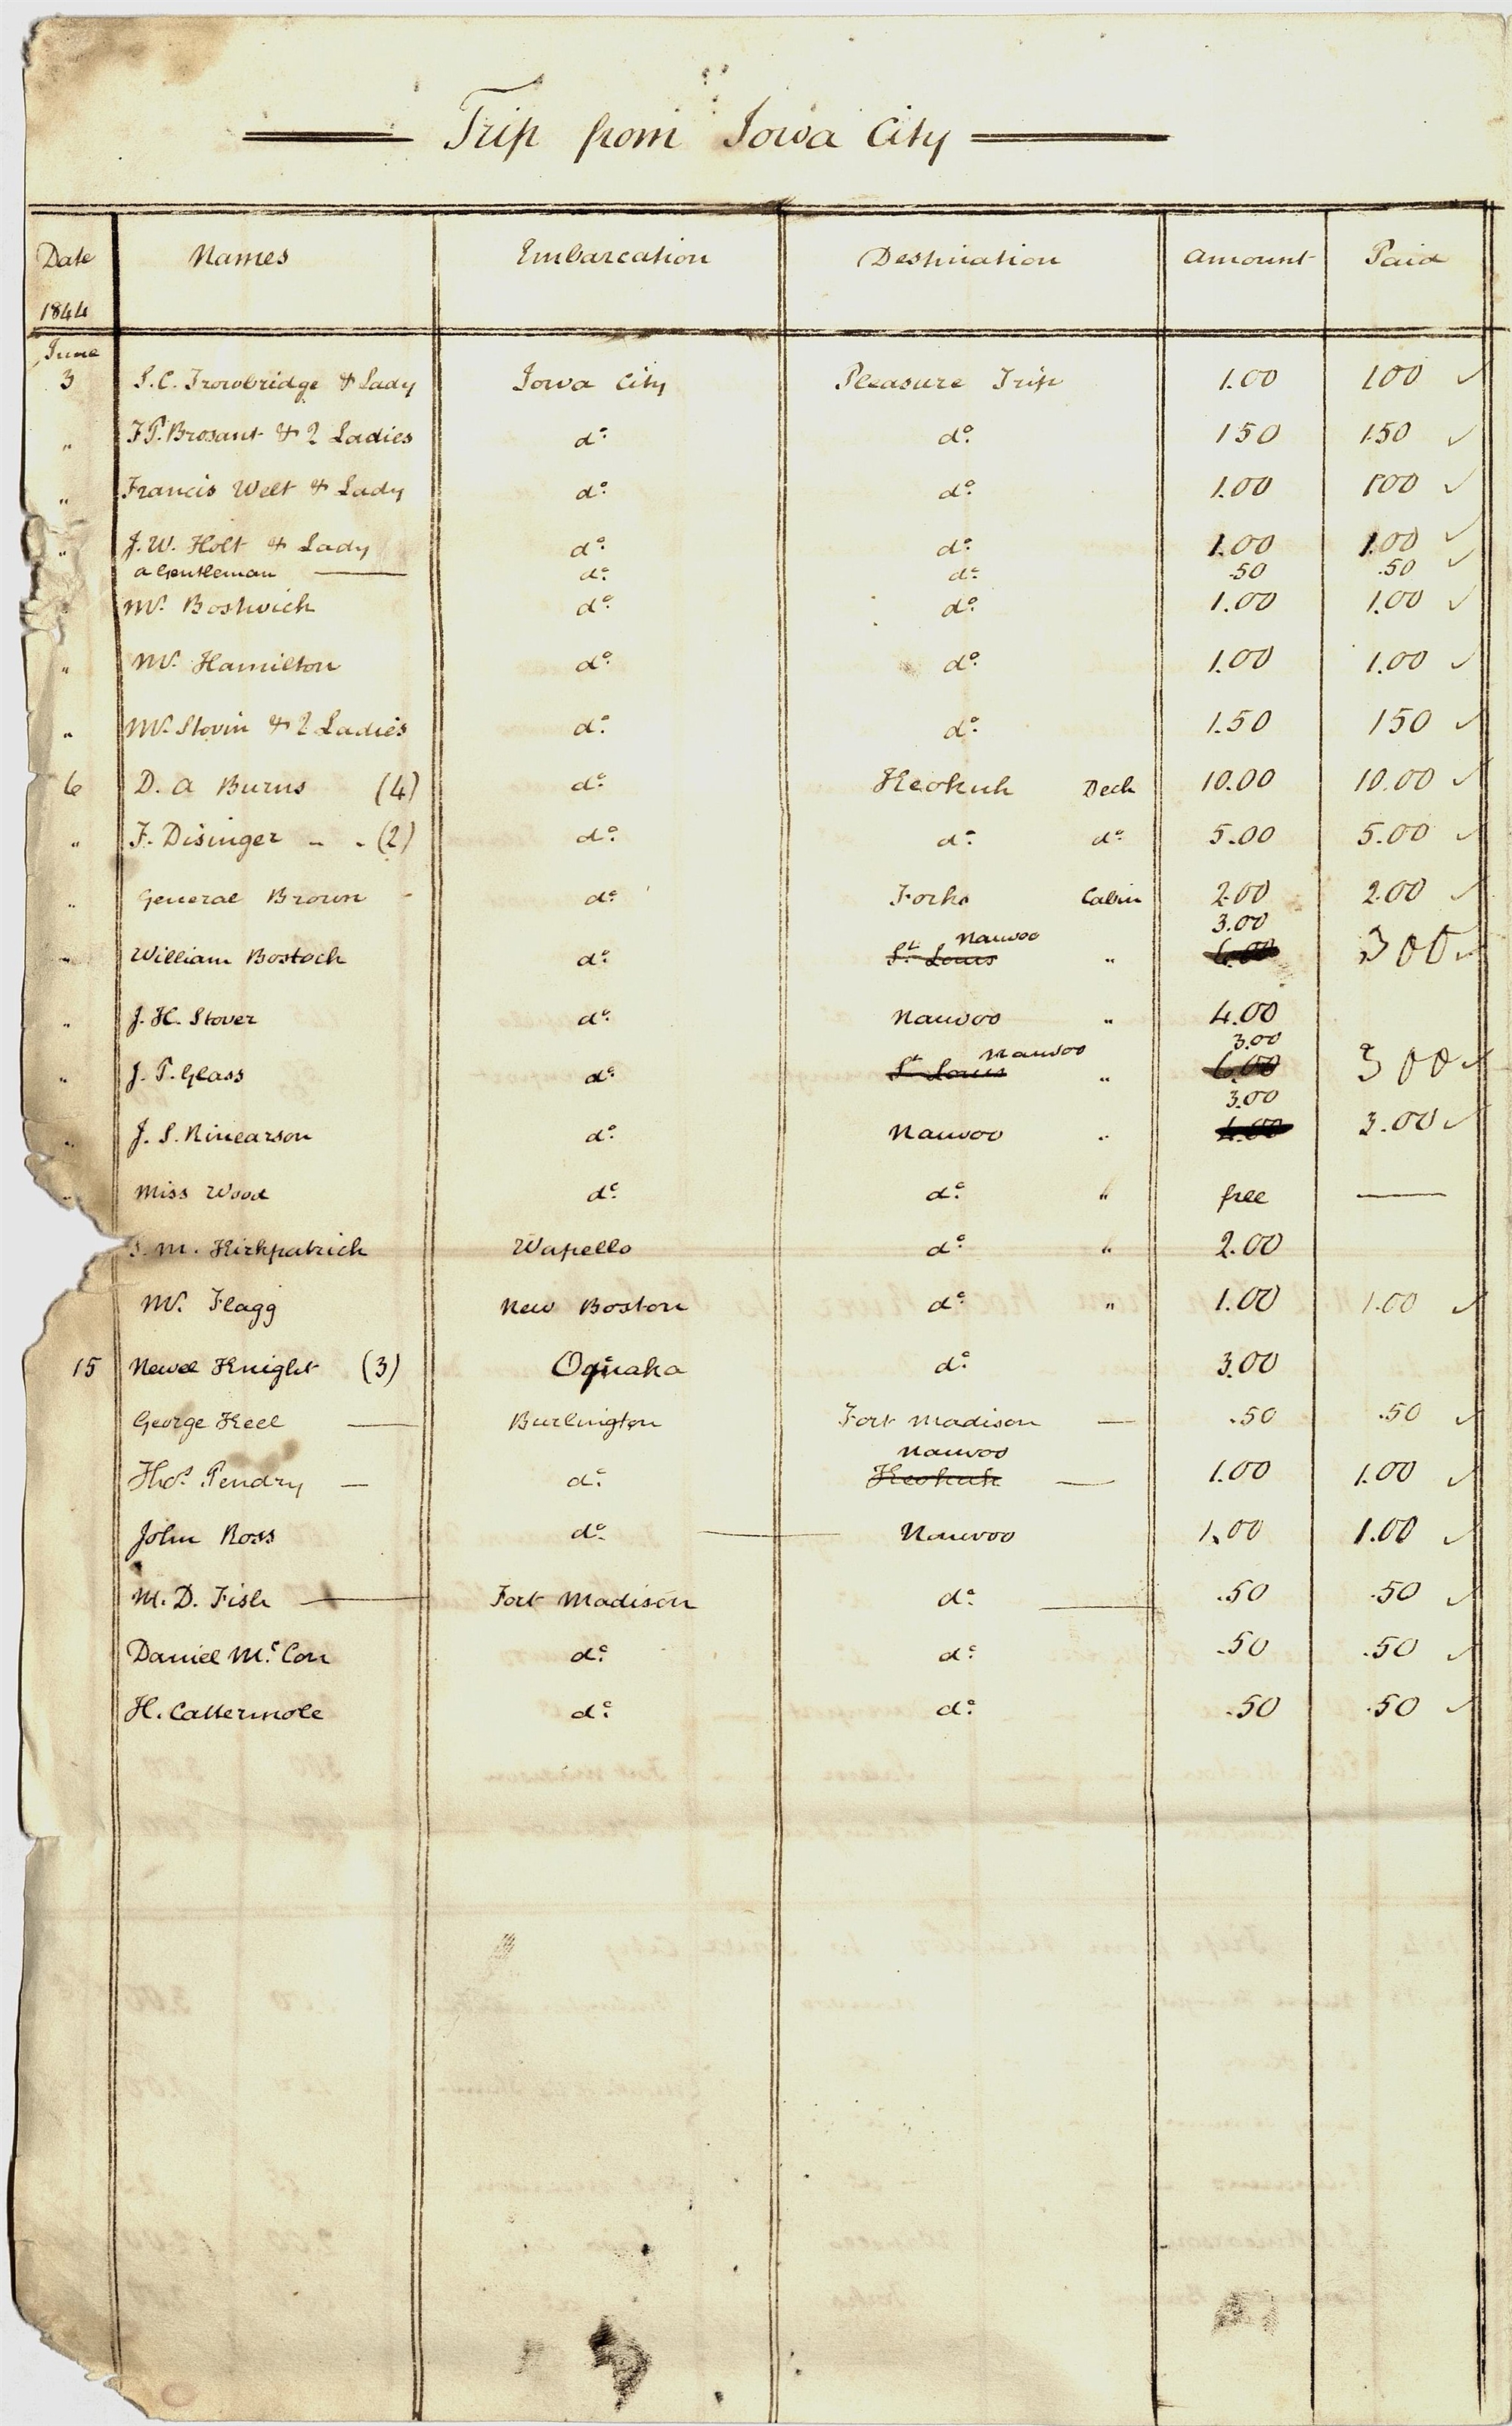 Trip from Iowa City
Date Names Embarcation Destination Amount Paid
1844
June
3 S.C. Trowbridge & Lady Iowa City Pleasure Trip 1.00 100 ✓
" F.P. Brosant & 2 Ladies do. do. 150 1.50 ✓
" Francis Welt & Lady do. do. 1.00 100 ✓
" J.W. Holt & Lady do. do. 1.00 1.00 ✓
a Gentleman — do. do. .50 .50 ✓
Mr. Bostwick do. do. 1.00 1.00 ✓
" Mr. Hamilton do. do. 1.00 1.00 ✓
" Mr. Stovin & 2 Ladies do. do. 1.50 150 ✓
6 D. A Burns (4) do. Keokuk Deck 10.00 10.00 ✓
" F. Disinger - - (2) do. do. do. 5.00 5.00 ✓
" General Brown - do. Forks Cabin 2.00 2.00 ✓
Nauvoo 3.00
" William Bostock do. St. Louis " 6.00 300 ✓
" J.H. Stover do. Nauvoo " 4.00
Nauvoo 3.00
" J.P. Glass do. St. Louis " 6.00 300 ✓
3.00
" J.S. Rinearson do. Nauvoo " 4.00 3.00 ✓
" Miss Wood do. do. " free —
S. M. Kirkpatrick Wapello do. " 2.00
Mr. Flagg New Boston do. " 1.00 1.00 ✓
15 Newel Knight (3) Oquaka do. 3.00
George Keel — Burlington Fort Madison — .50 .50 ✓
Nauvoo
Thos. Pendry — do. Keokuk — 1.00 1.00 ✓
John Ross do. — Nauvoo 1.00 1.00 ✓
M. D. Fish — Fort Madison do. — .50 .50 ✓
Daniel Mc. Con do. do. .50 .50 ✓
H. Cattermole do. do. .50 .50 ✓